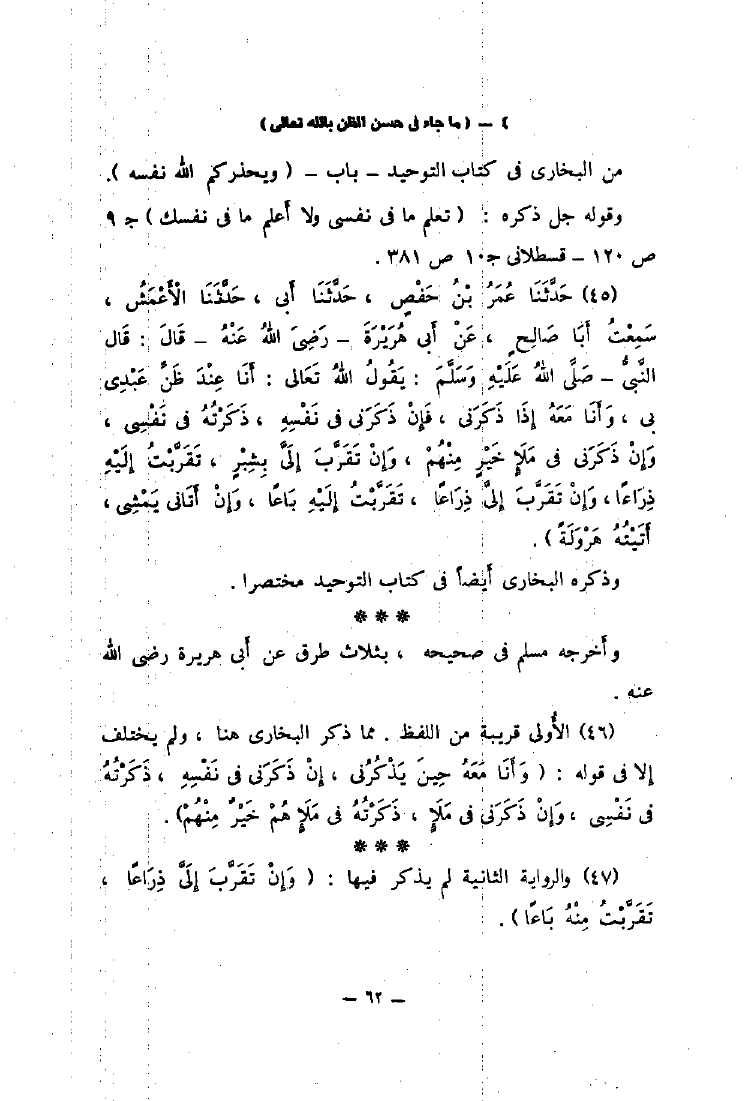 ٤ – ( ما جاء فى حسن الظن بالله تعالى )
من البخارى فى كتاب التوحيد – باب – ( ويحذركم الله نفسه ).
وقوله جل ذكره : ( تعلم ما فى نفسى ولا أعلم ما فى نفسك ) جـ ٩
ص ١٢٠ – قسطلانى جـ ١٠ ص ٣٨١ .
(٤٥) حَدَّثَنَا عُمَرُ بْنُ حَفْصٍ ، حَدَّثَنَا أَبى ، حَدَّثَنَا الْأَعْمَشُ ،
سَمِعْتُ أَبَا صَالِحٍ ، عَنْ أَبى هُرَيْرَةَ – رَضِىَ اللهُ عَنْهُ – قَالَ : قَال
النَّبىُّ – صَلَّى اللهُ عَلَيْهِ وَسَلَّمَ : يَقُولُ اللهُ تَعَالى : أَنَا عِنْدَ ظَنِّ عَبْدِى
بى ، وَأَنَا مَعَهُ إِذَا ذَكَرَنى ، فَإِنْ ذَكَرَنى فى نَفْسِهِ ، ذَكَرْتُهُ فى نَفْسِى ،
وَإِنْ ذَكَرَنى فى مَلَإٍ خَيْرٍ مِنْهُمْ ، وَإِنْ تَقَرَّبَ إِلَىَّ بِشِبْرٍ ، تَقَرَّبْتُ إِلَيْهِ
ذِرَاعًا ، وَإِنْ تَقَرَّبَ إِلىَّ ذِرَاعًا ، تَقَرَّبْتُ إِلَيْهِ بَاعًا ، وَإِنْ أَتَانى يَمْشِى ،
أَتَيْتُهُ هَرْوَلَةً ) .
وذكره البخارى أيضاً فى كتاب التوحيد مختصرا .
* * *
وأخرجه مسلم فى صحيحه ، بثلاث طرق عن أبى هريرة رضى الله
عنه .
(٤٦) الأُولى قريبة من اللفظ . مما ذكر البخارى هنا ، ولم يختلف
إلا فى قوله : ( وَأَنَا مَعَهُ حِينَ يَذْكُرُنى ، إِنْ ذَكَرَنى فى نَفْسِهِ ، ذَكَرْتُهُ
فى نَفْسِى ، وَإِنْ ذَكَرَنى فى مَلَإٍ ، ذَكَرْتُهُ فى مَلَإٍ هُمْ خَيْرٌ مِنْهُمْ) .
* * *
(٤٧) والرواية الثانية لم يذكر فيها : ( وَإِنْ تَقَرَّبَ إِلَىَّ ذِرَاعًا ،
تَقَرَّبْتُ مِنْهُ بَاعًا ) .
– ٦٢ –